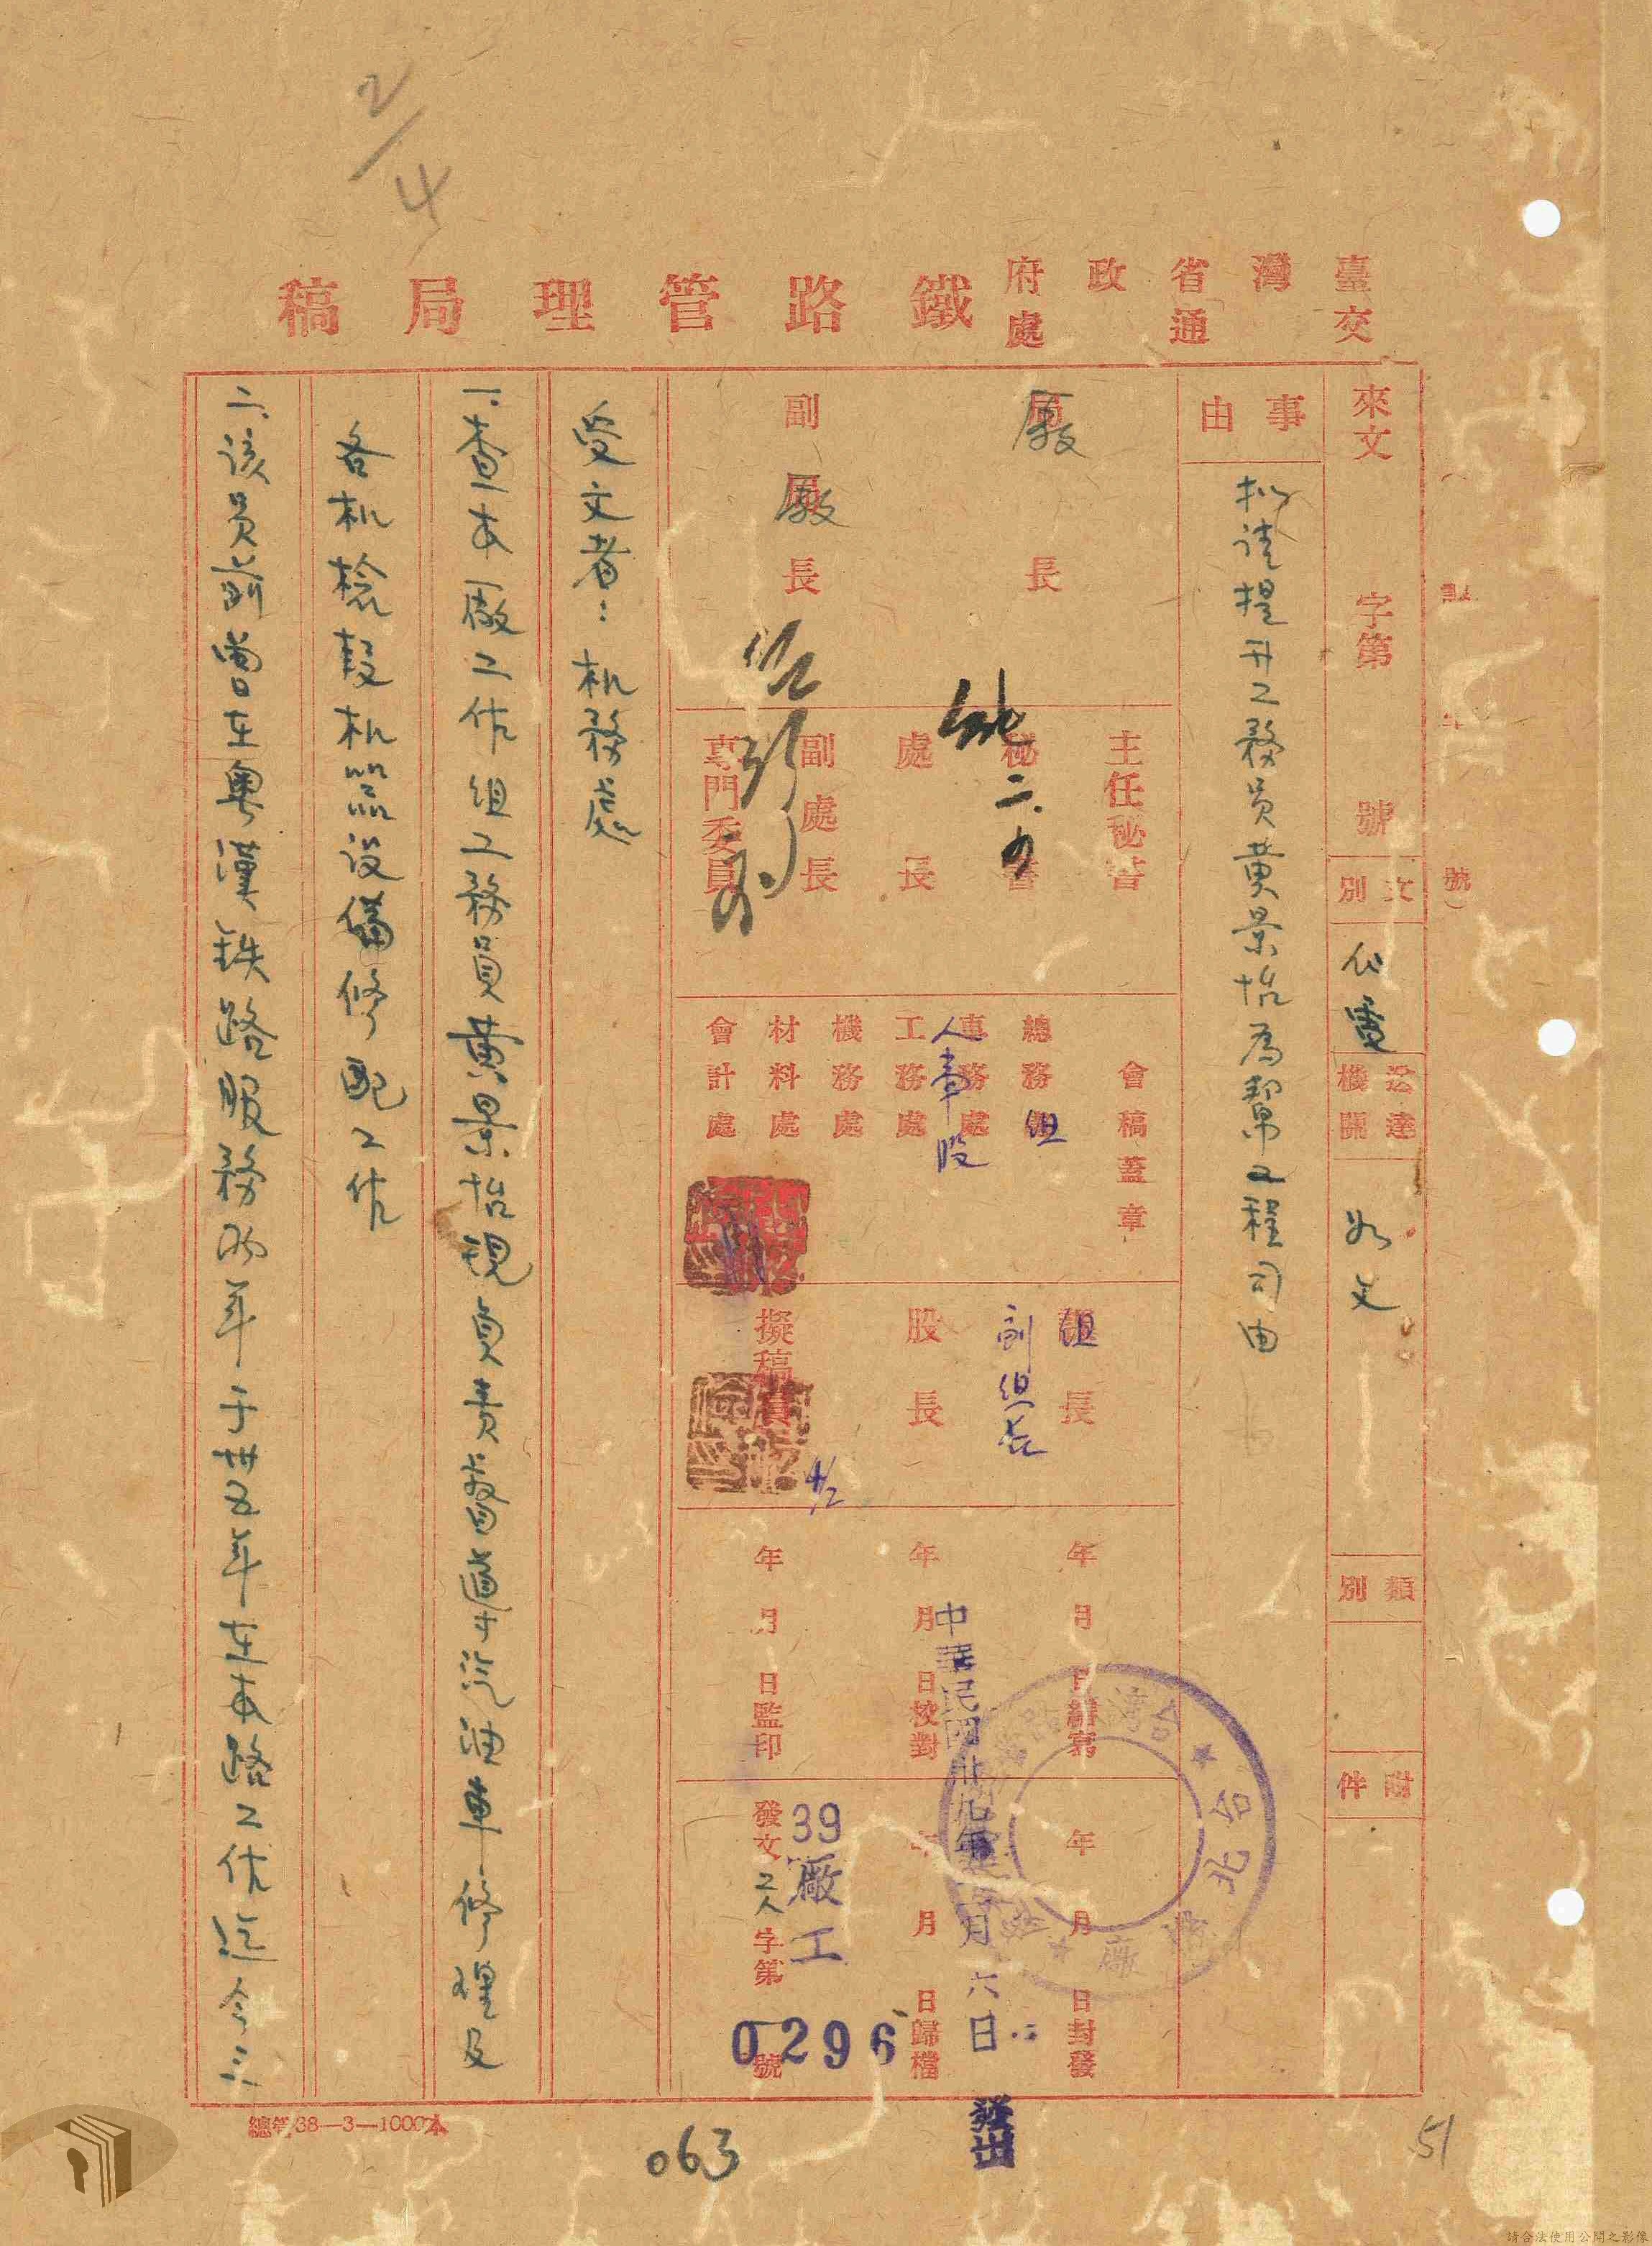 2/4
臺灣省政府
交通處
鐵路管理局稿
來文 字第 號
文別
代電
送達機關
如文
類別
附件
事由
拟請提升工務員黃景怡為幫工程司由
廠長
副廠長
主任秘書
秘書
處長
副處長
專門委員
二.
會稿蓋章
總務組
車務處
人事股
工務處
機務處
材料處
會計處
組長
副組長
股長
擬稿員
4/2
年 月 日繕寫
年 月 日校對
年 月 日監印
年 月 日封發
年 月 日歸檔
中華民國卅九年 月六日
發出
台北
廠
發文 工人 字第 號
39廠工
0296
受文者：机務處
一.查本廠工作組工務員黃景怡現負責客貨車汽油車修理及
各机檢段机器設備修配工作
二.該員前曾在粵漢鉄路服務 年于卅五年在本路工作迄今三
總管38—3—1000本
063
51
請合法使用公開之影像